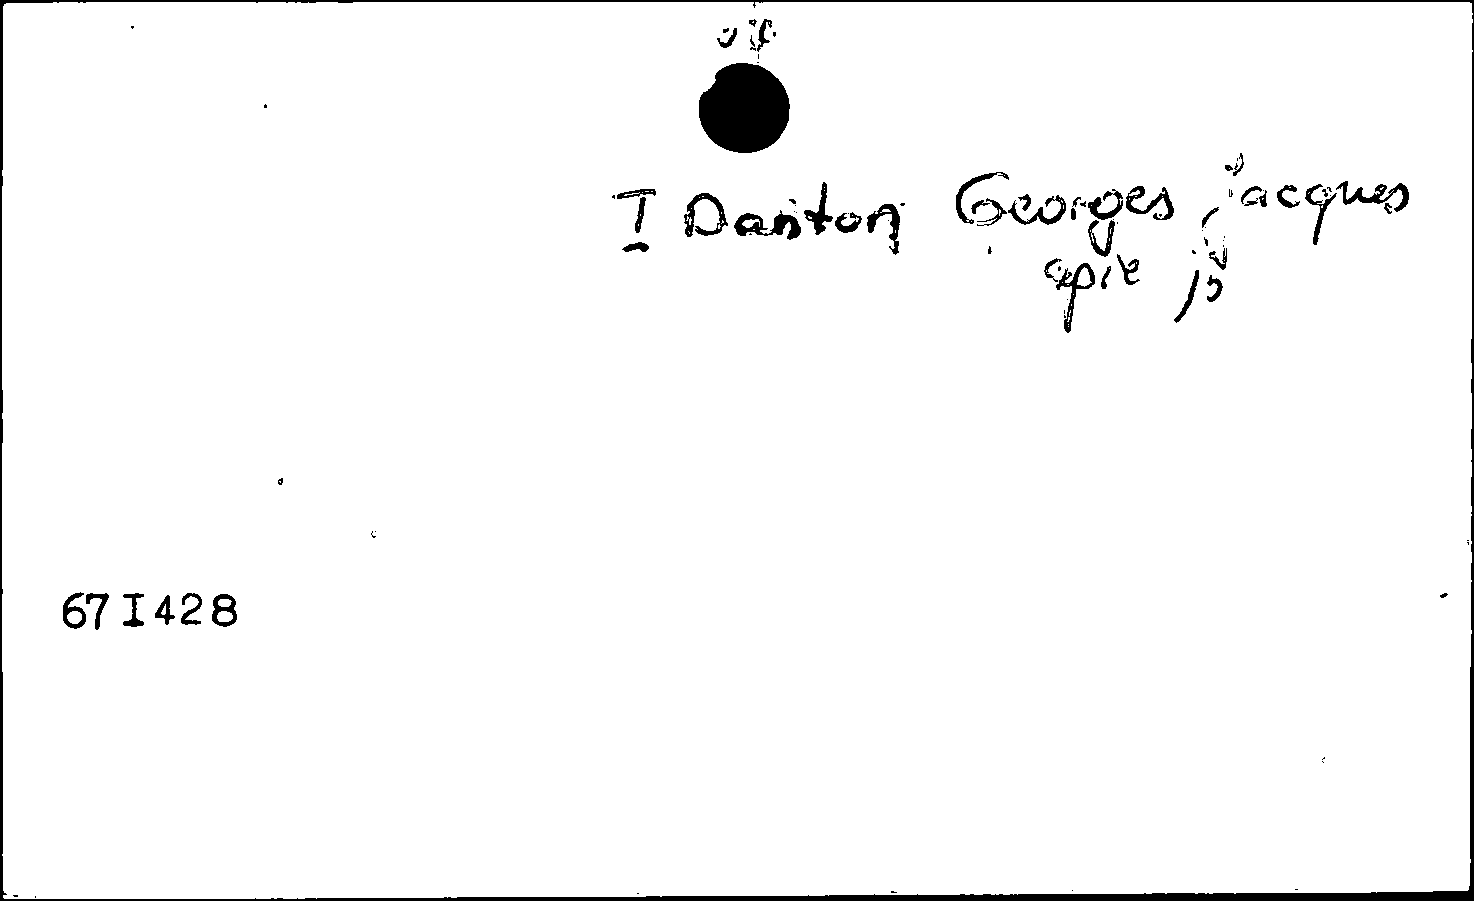 I Danton Georges Jacques
67I428